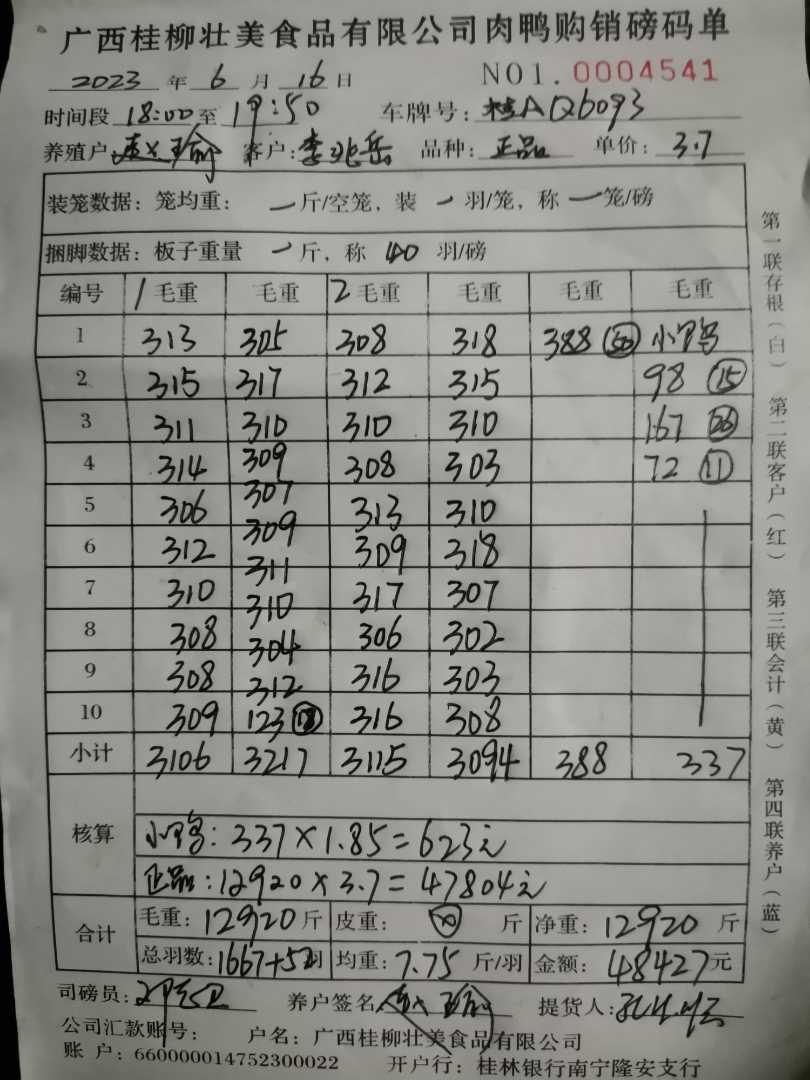 广西桂柳壮美食品有限公司肉鸭购销磅码单
2023 年 6 月 16 日 NO1.0004541
时间段 18:00 至 19:50 车牌号: 桂AQ6093
养殖户: 客户: 李兆岳 品种: 正品 单价: 3.7
装笼数据: 笼均重: 一 斤/空笼, 装 一 羽/笼, 称 一 笼/磅
捆脚数据: 板子重量 一 斤, 称 40 羽/磅
编号 1 毛重 毛重 2 毛重 毛重 毛重 毛重
1 313 305 308 318 388 (50) 小鸭
2 315 317 312 315 98 (15)
3 311 310 310 310 167 (26)
4 314 309 308 303 72 (11)
5 306 307 313 310
6 312 309 309 318
7 310 311 317 307
8 308 310 306 302
9 308 304 316 303
312
10 309 123 316 308
小计 3106 3217 3115 3094 388 337
核算 小鸭: 337×1.85=623元
正品: 12920×3.7=47804元
合计 毛重: 12920 斤 皮重: 斤 净重: 12920 斤
总羽数: 1667+52 羽 均重: 7.75 斤/羽 金额: 48427 元
司磅员: 养户签名 提货人:
公司汇款账号: 户名: 广西桂柳壮美食品有限公司
账 户: 660000014752300022 开户行: 桂林银行南宁隆安支行
第一联存根(白) 第二联客户(红) 第三联会计(黄) 第四联养户(蓝)